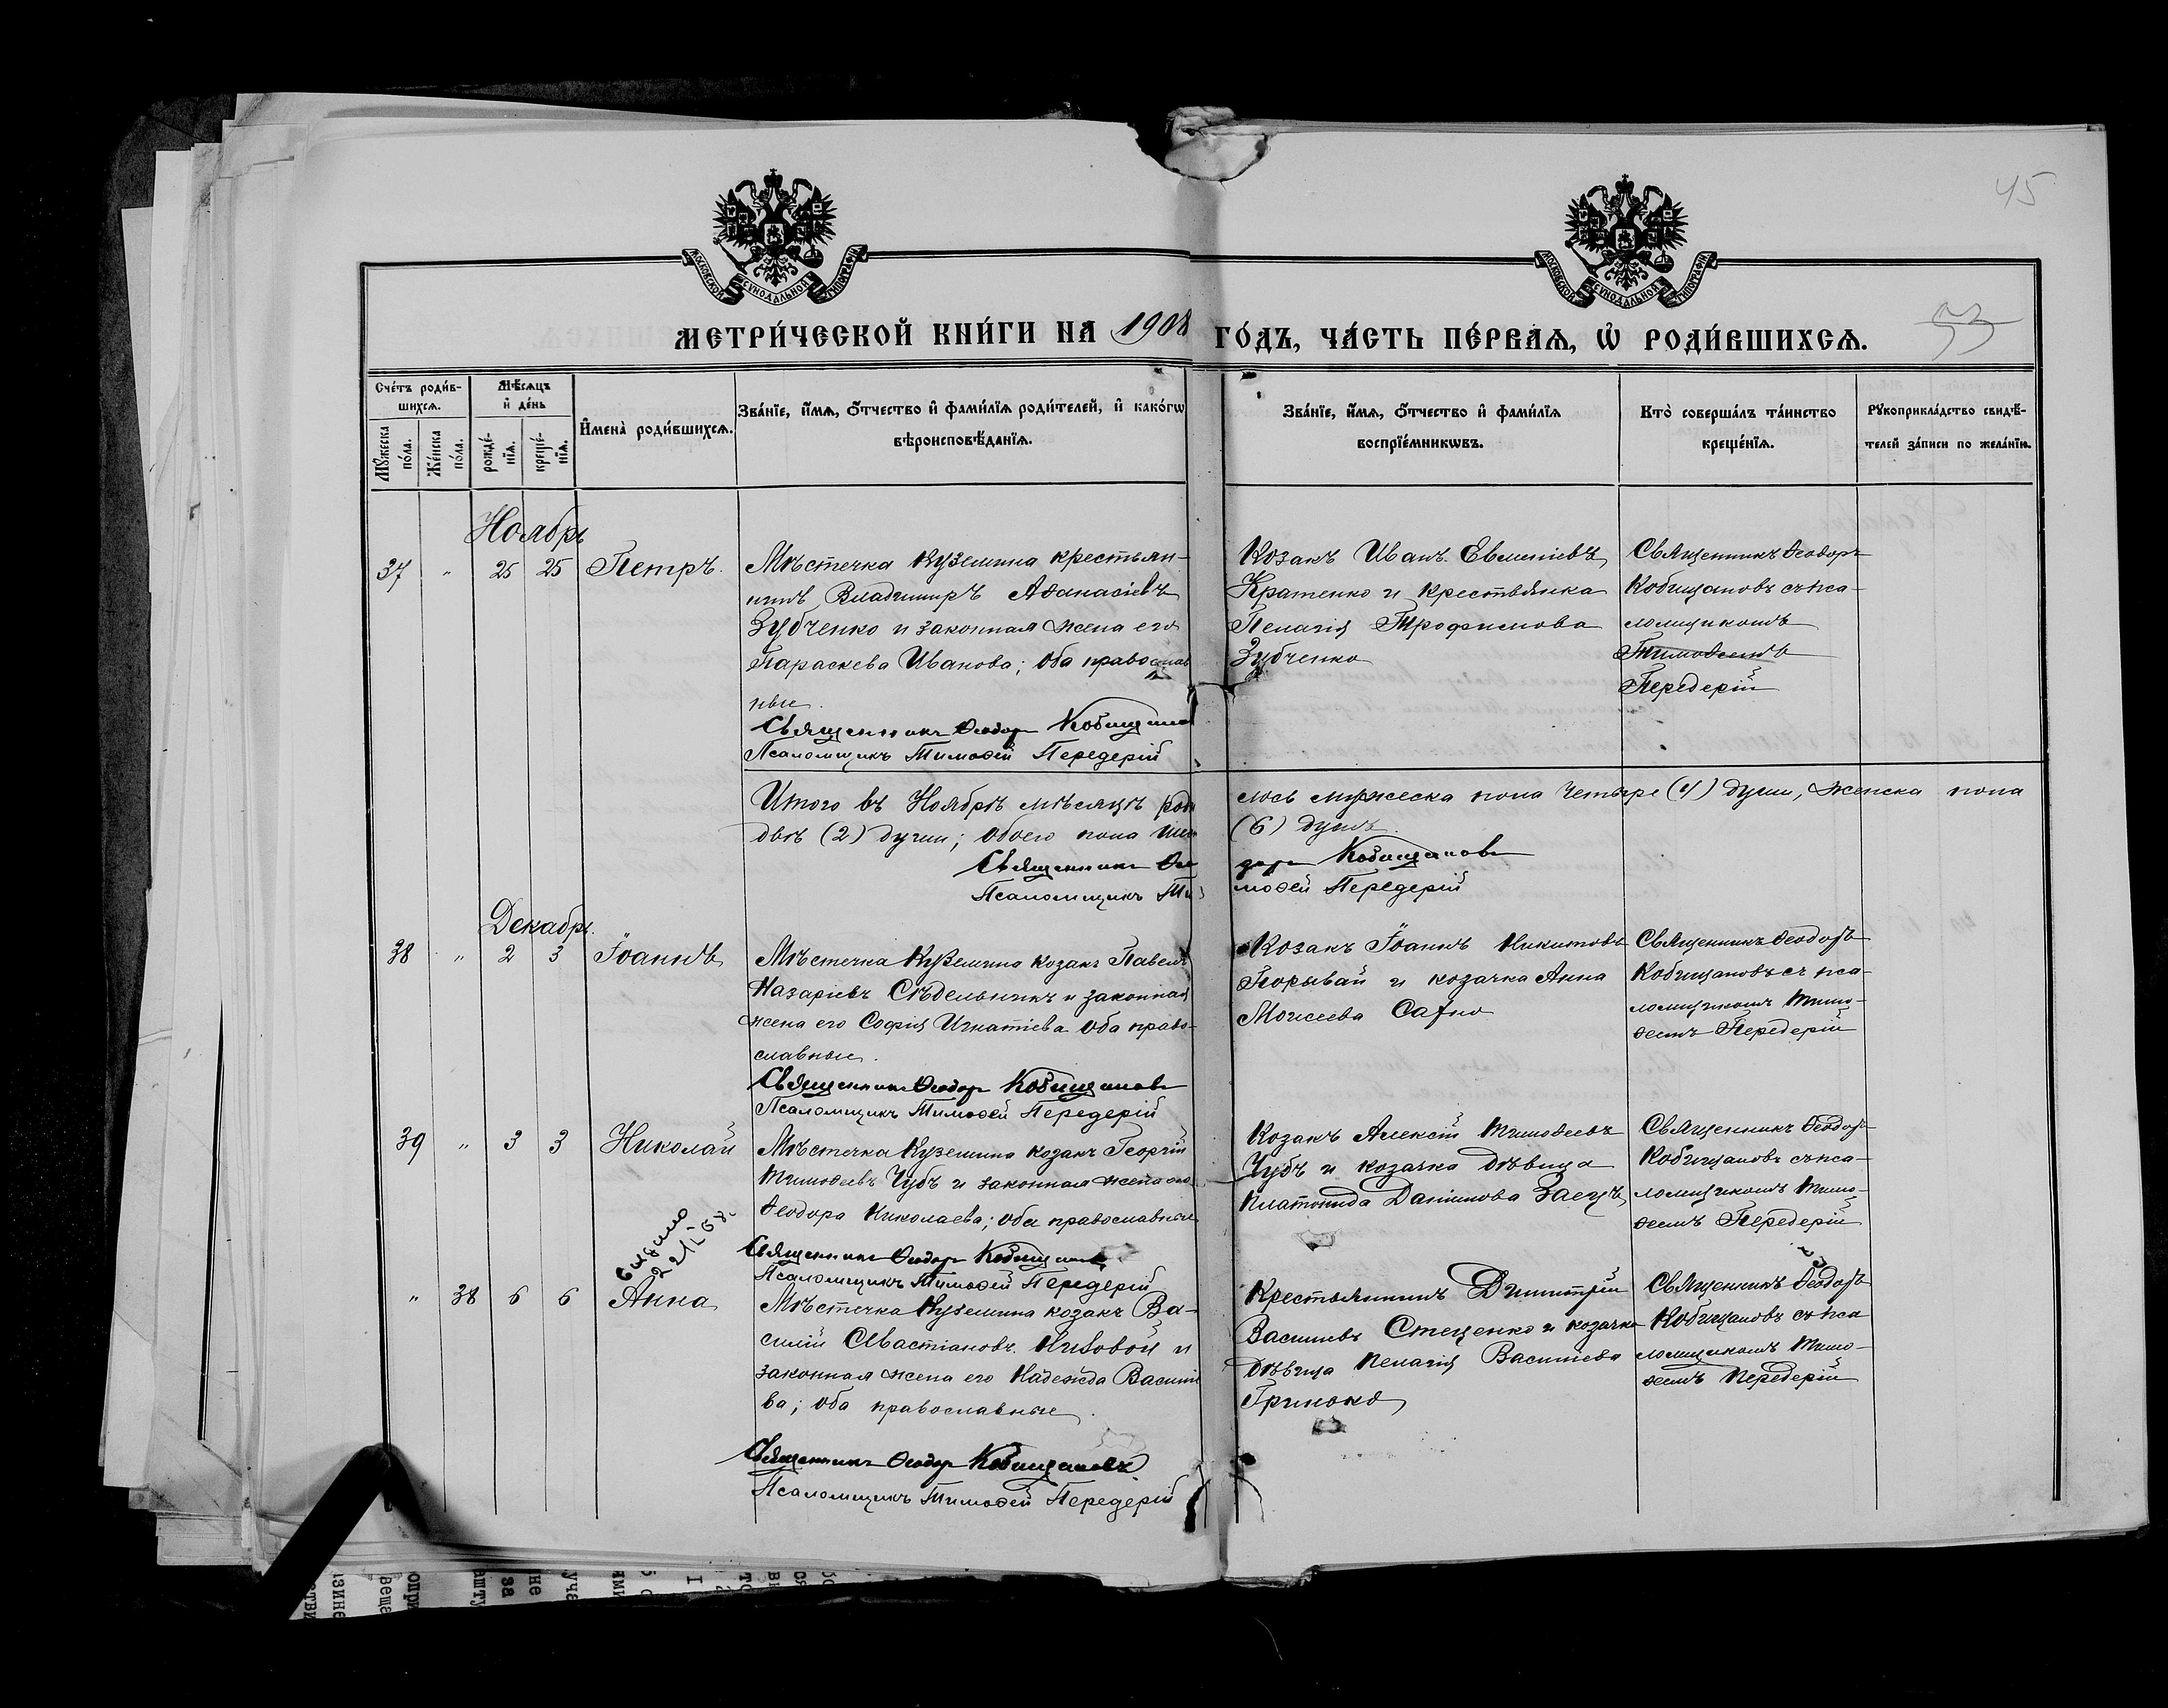 45
МОСКОВСКОЙ СѴНОДАЛЬНОЙ ТИПОГРАФІИ
МОСКОВСКОЙ СѴНОДАЛЬНОЙ ТИПОГРАФІИ
МЕТРИ́ЧЕСКОЙ КНИ́ГИ НА 1908 ГО́ДЪ, ЧА́СТЬ ПЕ́РВАѦ, Ѡ҆ РОДИ́ВШИХСѦ.
53
Сче́тъ роди́в-
шихсѧ.
Мꙋ́жеска
по́ла.
Же́нска
по́ла.
Мѣ́сѧцъ
и҆ де́нь
рожде́-
нїѧ.
креще́-
нїѧ.
И҆мена̀ роди́вшихсѧ.
Зва́нїе, и҆́мѧ, ѻ҆́тчество и҆ фами́лїѧ роди́телей, и҆ како́гѡ
вѣроисповѣ́данїѧ.
Зва́нїе, и҆́мѧ, ѻ҆́тчество и҆ фами́лїѧ
воспрїе́мникѡвъ.
Кто̀ соверша́лъ та́инство
креще́нїѧ.
Рꙋкоприкла́дство свидѣ́-
телей за́писи по жела́нїю.
Ноябрь
37 " 25 25 Петръ.
Мѣстечка Куземина крестьян-
инъ Владимиръ Аѳанасіевъ
Зубченко и законная жена его
Параскева Иванова; оба православ
ные.
Священникъ Ѳеодоръ Кобищанов
Псаломщикъ Тимоѳей Передерій
Козакъ Иванъ Евменіевъ
Кратенко и крестьянка
Пелагія Трофимова
Зубченко
Священникъ Ѳеодоръ
Кобищановъ съ пса-
ломщикомъ
Тимоѳеемъ
Передерій
Итого въ Ноябрѣ мѣсяцѣ роди лось мужеска пола четыре (4) души, женска пола
двѣ (2) души; обоего пола шесть (6) душъ.
Священникъ Ѳео доръ Кобищановъ
Псаломщикъ Ти моѳей Передерій
Декабрь.
38 " 2 3 Іоаннъ
Мѣстечка Куземина козакъ Павелъ
Назаріевъ Сѣдельникъ и законная
жена его Софія Игнатіева оба право-
славные.
Священникъ Ѳеодоръ Кобищановъ
Псаломщикъ Тимоѳей Передерій
Козакъ Іоаннъ Никитовъ
Порывай и козачка Анна
Моисеева Сахно
Священникъ Ѳеодоръ
Кобищановъ съ пса-
ломщикомъ Тимо-
ѳеемъ Передерій
39 " 3 3 Николай
Мѣстечка Куземина козакъ Георгій
Тимоѳеевъ Чубъ и законная жена его
Ѳеодора Николаева; оба православные
Священникъ Ѳеодоръ Кобищановъ
Псаломщикъ Тимоѳей Передерій
Козакъ Алексій Тимоѳеевъ
Чубъ и козачка дѣвица
Платонида Даніилова Заецъ
Священникъ Ѳеодоръ
Кобищановъ съ пса-
ломщикомъ Тимо-
ѳеемъ Передерій
" 38 6 6 Анна
Мѣстечка Куземина козакъ Ва-
силій Савастіановъ Низовой и
законная жена его Надежда Василіе
ва; оба православные.
Священникъ Ѳеодоръ Кобищановъ
Псаломщикъ Тимоѳей Передерій
Крестьянинъ Димитрій
Василіевъ Стеценко и козачка
дѣвица Пелагія Василіева
Гринько
Священникъ Ѳеодоръ
Кобищановъ съ пса
ломщикомъ Тимо-
ѳеемъ Передерій